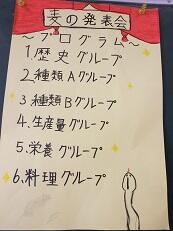 麦の発表会
～プログラム～
1.歴史グループ
2.種類Aグループ
3.種類Bグループ
4.生産量グループ
5.栄養グループ
6.料理グループ